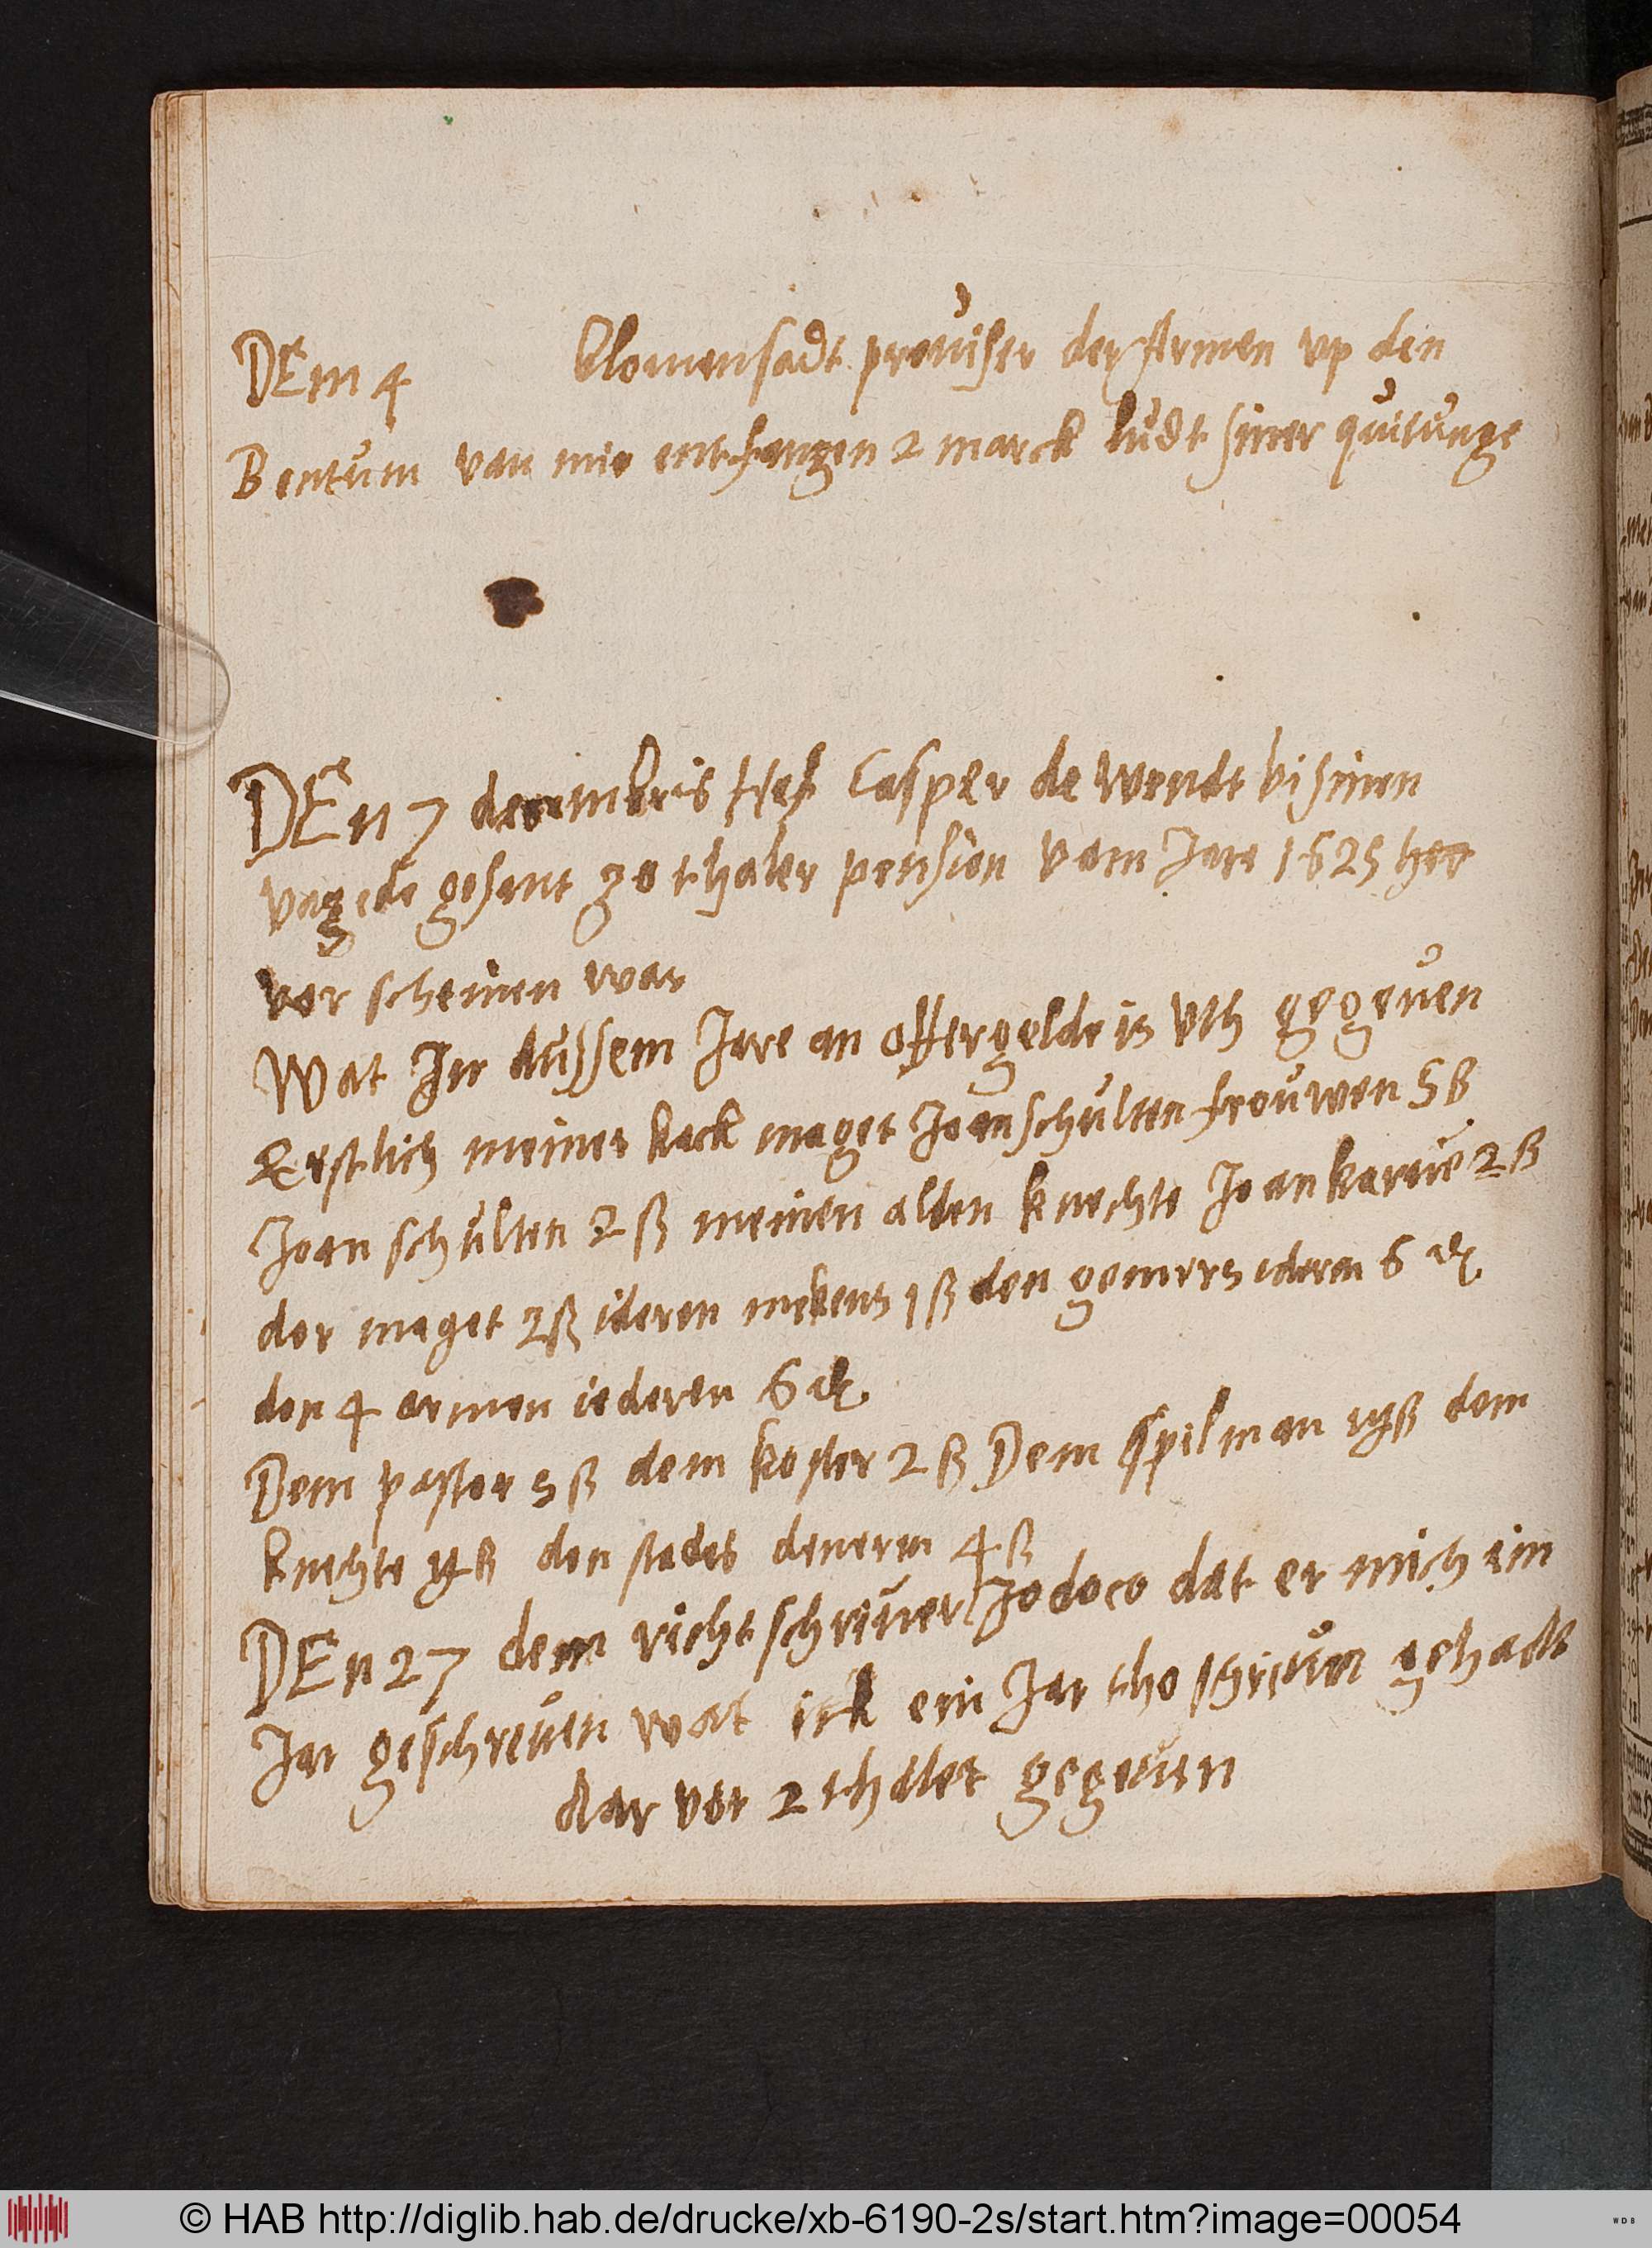 DEm 4 Clomensadt prouiser der Armen vp den
Bentum van mir entfangen 2 marck ludt siner quitunge
DEn 7 decembris Hef Casper de Wendt bi sinen
vagede gesant 30 thaler pension vam Jare 1625 her
vor scheinen war
Wat In dussem Jare an offergelde is vth gegeuen
Erstlich meiner kack maget Joan schulten frouwen 5 ß
Joan schulten 2 ß meinen alden knechte Joan karrie 2 ß
der maget 2 ß ideren mekens 1 ß den ideren 6 ₰
den 4 armen iederen 6 ₰
Dem pastor 5 ß dem koster 2 ß Dem spilman ß dem
knechte ß den stades deneren 4 ß
DEn 27 dem richtschriuer Jodoco dat er mich ein
Jar geschreuen wat ick ein Jar tho schriuen gehadt
dar vor 2 thaler gegeuen
© HAB http://diglib.hab.de/drucke/xb-6190-2s/start.htm?image=00054
WDB